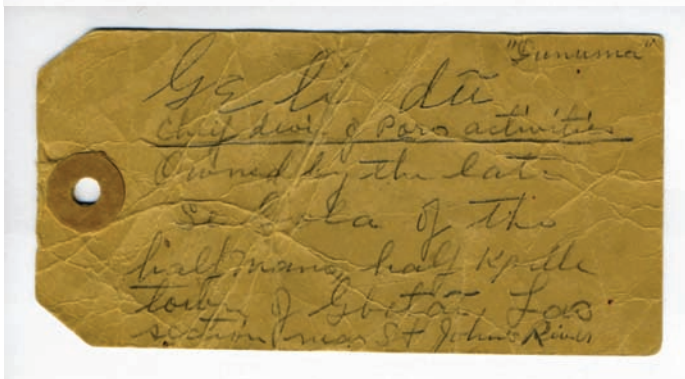 "Gunuma"
Gɛ li dū
Chief devil of Poro activities
Owned by the late
Se Gola of the
half Mano, half Kpelle
town of Gbotāi, Las
section near St John's River